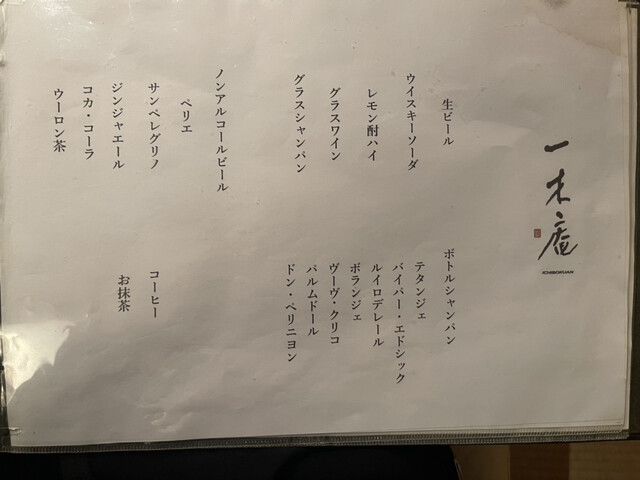 一木庵
ICHIBOKUAN
生ビール
ウイスキーソーダ
レモン酎ハイ
グラスワイン
グラスシャンパン
ノンアルコールビール
ペリエ
サンペレグリノ
ジンジャエール
コカ・コーラ
ウーロン茶
ボトルシャンパン
テタンジェ
パイパー・エドシック
ルイロデレール
ボランジェ
ヴーヴ・クリコ
パルムドール
ドン・ペリニヨン
コーヒー
お抹茶